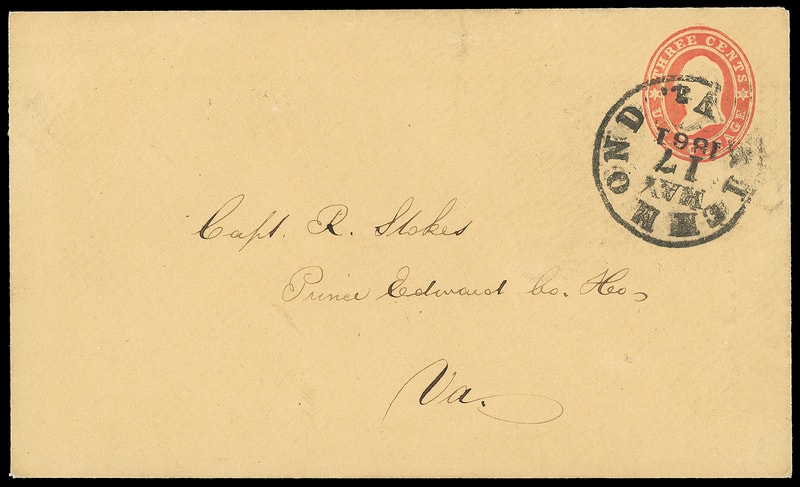 THREE CENTS
U.S. POSTAGE
RICHMOND Va.
MAY
17
1861
Capt. R. Stokes
Prince Edward Co. Ho
Va.